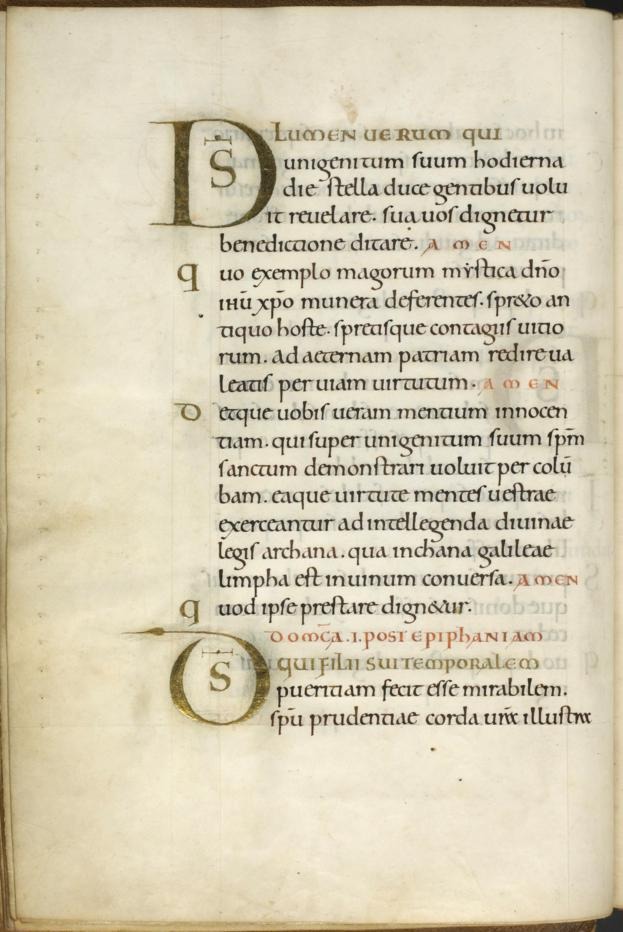 D̄S LUMEN UERUM QUI
unigenitum suum hodierna
die stella duce gentibus uolu
it reuelare. sua uos dignetur
benedictione ditare. AMEN
quo exemplo magorum mystica dn̄o
ihū xp̄o munera deferentes. spreto an
tiquo hoste. spretisque contagiis uitio
rum. ad aeternam patriam redire ua
leatis per uiam uirtutum. AMEN
Detque uobis ueram mentium innocen
tiam. qui super unigenitum suum sp̄m
sanctum demonstrari uoluit per colū
bam. eaque uirtute mentes uestrae
exerceantur ad intellegenda diuinae
legis archana. qua inchana galileae
limpha est in uinum conuersa. AMEN
quod ipse prestare dign&ur.
DOMC̄A. I. POST EPIPHANIAM
D̄S QUI FILII SUI TEMPORALEM
pueritiam fecit esse mirabilem.
sp̄u prudentiae corda ur̄ꝝ illustrꝝ